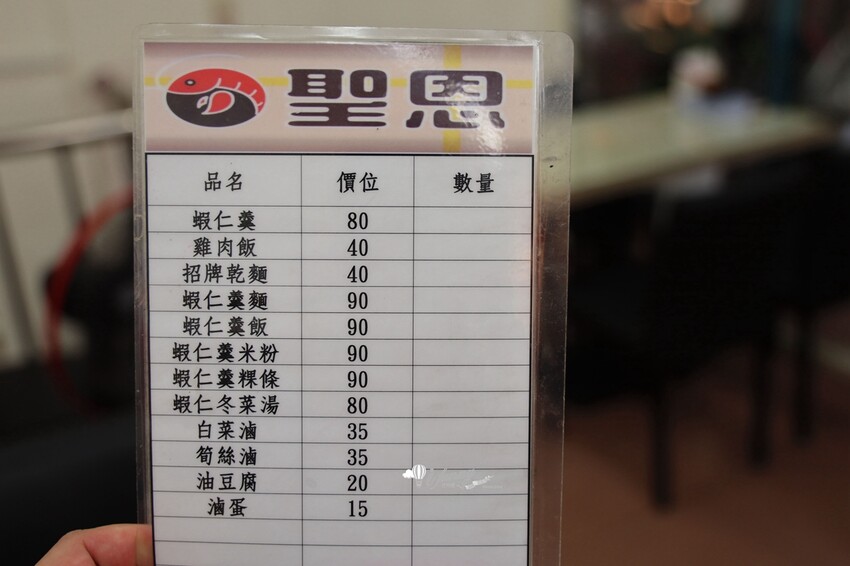 聖恩
品名 價位 數量
蝦仁羹 80
雞肉飯 40
招牌乾麵 40
蝦仁羹麵 90
蝦仁羹飯 90
蝦仁羹米粉 90
蝦仁羹粿條 90
蝦仁冬菜湯 80
白菜滷 35
筍絲滷 35
油豆腐 20
滷蛋 15